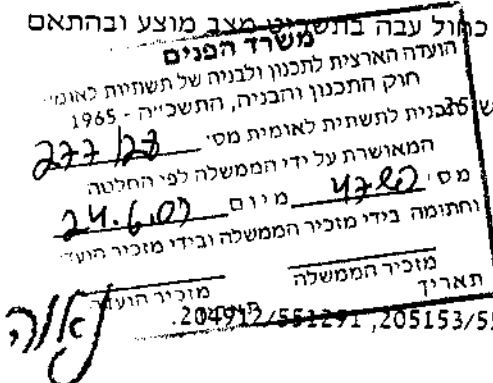 כחול עבה בתשריט מצב מוצע ובהתאם
משרד הפנים
הועדה הארצית לתכנון ולבניה של תשתיות לאומי
חוק התכנון והבניה, התשכ"ה - 1965
תכנית לתשתית לאומית מס'
המאושרת על ידי הממשלה לפי החלטה
מס' מיום 24.6.07
וחתומה בידי מזכיר הממשלה ובידי מזכיר הועד
מזכיר הממשלה מזכיר הועדה
תאריך
204912/551291 ,205153/55